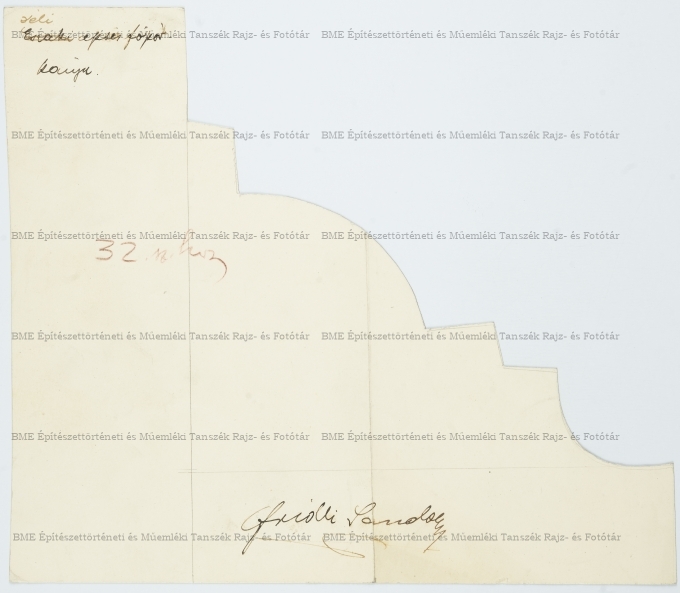 déli
párkánya.
BME Építészettörténeti és Műemléki Tanszék Rajz- és Fotótár BME Építészettörténeti és Műemléki Tanszék Rajz- és Fotótár
BME Építészettörténeti és Műemléki Tanszék Rajz- és Fotótár BME Építészettörténeti és Műemléki Tanszék Rajz- és Fotótár
32
BME Építészettörténeti és Műemléki Tanszék Rajz- és Fotótár BME Építészettörténeti és Műemléki Tanszék Rajz- és Fotótár
BME Építészettörténeti és Műemléki Tanszék Rajz- és Fotótár BME Építészettörténeti és Műemléki Tanszék Rajz- és Fotótár
BME Építészettörténeti és Műemléki Tanszék Rajz- és Fotótár BME Építészettörténeti és Műemléki Tanszék Rajz- és Fotótár
Fridli Sándor
BME Építészettörténeti és Műemléki Tanszék Rajz- és Fotótár BME Építészettörténeti és Műemléki Tanszék Rajz- és Fotótár